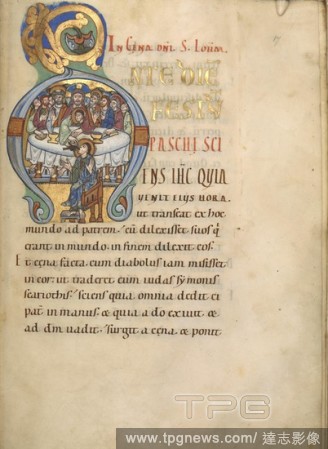 IN CENA DNI. S. IOHM.
NTE DIE
FESTV
PASCHI SCI
ENS IHC QUIA
VENIT EIVS HORA
ut transeat ex hoc
mundo ad patrem. cū dilexisset suos q
erant in mundo. in finem dilexit eos.
Et cena facta. cum diabolus iam misisset
in cor. ut traderet eum iudas symonis
scariothis. sciens quia omnia dedit ei
pat in manus. & quia a do exiuit &
ad dm uadit. surgit a cena. & ponit
TPG
www.tpgnews.com/達志影像